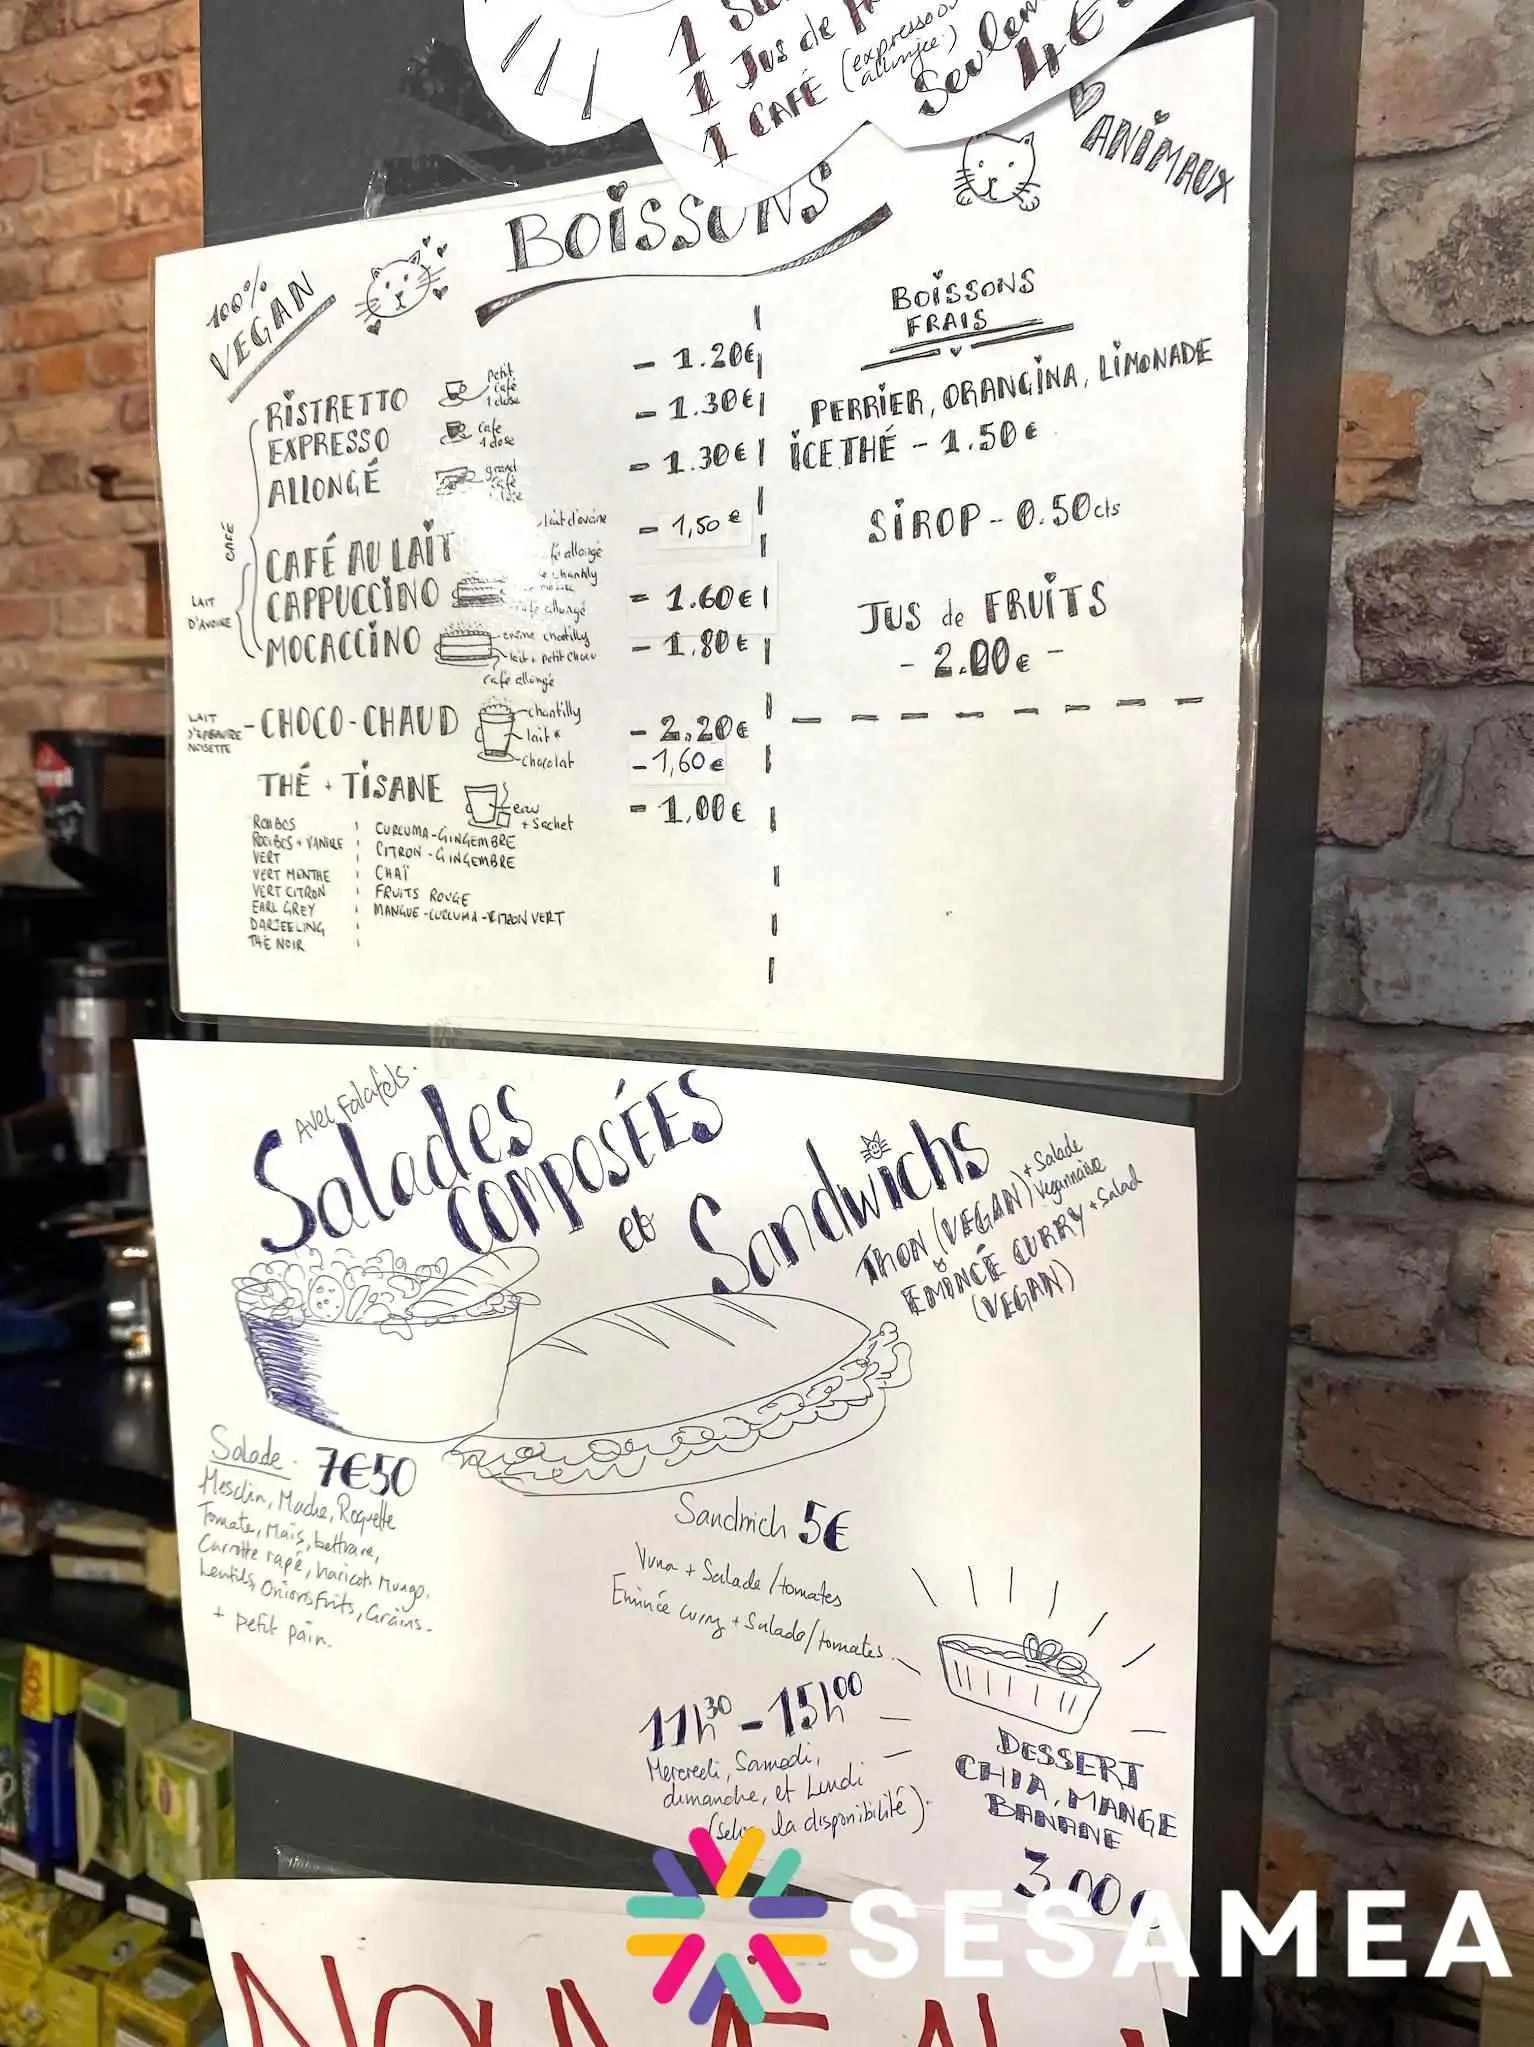 1 Jus de
1 CAFÉ (expresso ou
allongé)
Seulem
4€
BOISSONS
100%
VEGAN
ANIMAUX
CAFÉ
RISTRETTO petit café 1 dose - 1.20€
EXPRESSO café 1 dose - 1.30€
ALLONGÉ grand café - 1.30€
CAFÉ AU LAIT lait d'avoine - 1,50€
LAIT D'AVOINE
CAPPUCCINO café allongé - 1.60€
MOCACCINO crème chantilly - 1.80€
lait + petit choco
café allongé
LAIT D'ÉPEAUTRE NOISETTE
- CHOCO-CHAUD chantilly - 2,20€
lait * - 1,60€
chocolat
THÉ + TISANE eau + Sachet - 1,00€
ROIBOS
ROIBOS + VANILLE
VERT
VERT MENTHE
VERT CITRON
EARL GREY
DARJEELING
THÉ NOIR
CURCUMA-GINGEMBRE
CITRON-GINGEMBRE
CHAÏ
FRUITS ROUGE
MANGUE-CURCUMA-CITRON VERT
BOISSONS
FRAIS
PERRIER, ORANGINA, LIMONADE
ICE THÉ - 1.50€
SIROP - 0.50cts
JUS de FRUITS
- 2.00€ -
Avec Falafels.
Salades
COMPOSÉES
et Sandwichs
THON (VEGAN) + Salade
Vegannaise
EMINCÉ CURRY + Salad
(VEGAN)
Salade. 7€50
Mesclin, Mache, Roquette
Tomate, Maïs, bettrave,
Carrotte rapé, haricots Mungo.
Lentils, Onions frits, Grains.
+ petit pain.
Sandwich 5€
Vuna + Salade/tomates
Emincée curry + Salade/tomates
11h30 - 15h00
Mercredi, Samedi,
dimanche, et Lundi
(Selon la disponibilité).
DESSERT
CHIA, MANGE
BANANE
3,00€
SESAMEA